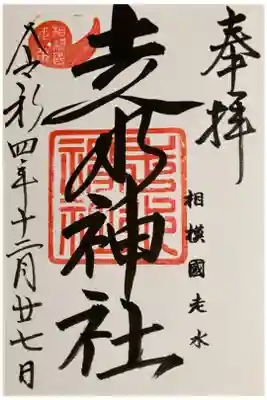 奉拝
相模國走水
走水神社
令和四年十二月廿七日
相模國
走水